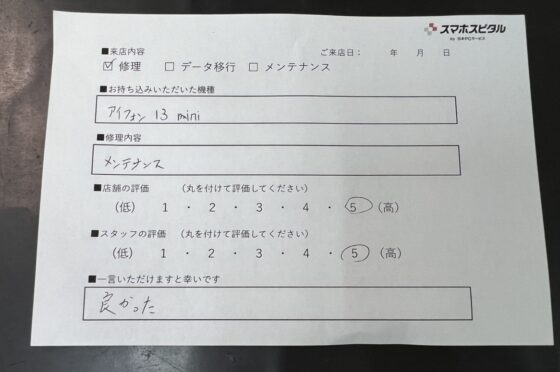 スマホスピタル
by 日本PCサービス
■来店内容
ご来店日： 年 月 日
☑ 修理 □ データ移行 □ メンテナンス
■お持ち込みいただいた機種
アイフォン 13 mini
■修理内容
メンテナンス
■店舗の評価 （丸を付けて評価してください）
（低） 1 ・ 2 ・ 3 ・ 4 ・ 5 （高）
■スタッフの評価 （丸を付けて評価してください）
（低） 1 ・ 2 ・ 3 ・ 4 ・ 5 （高）
■一言いただけますと幸いです
良かった